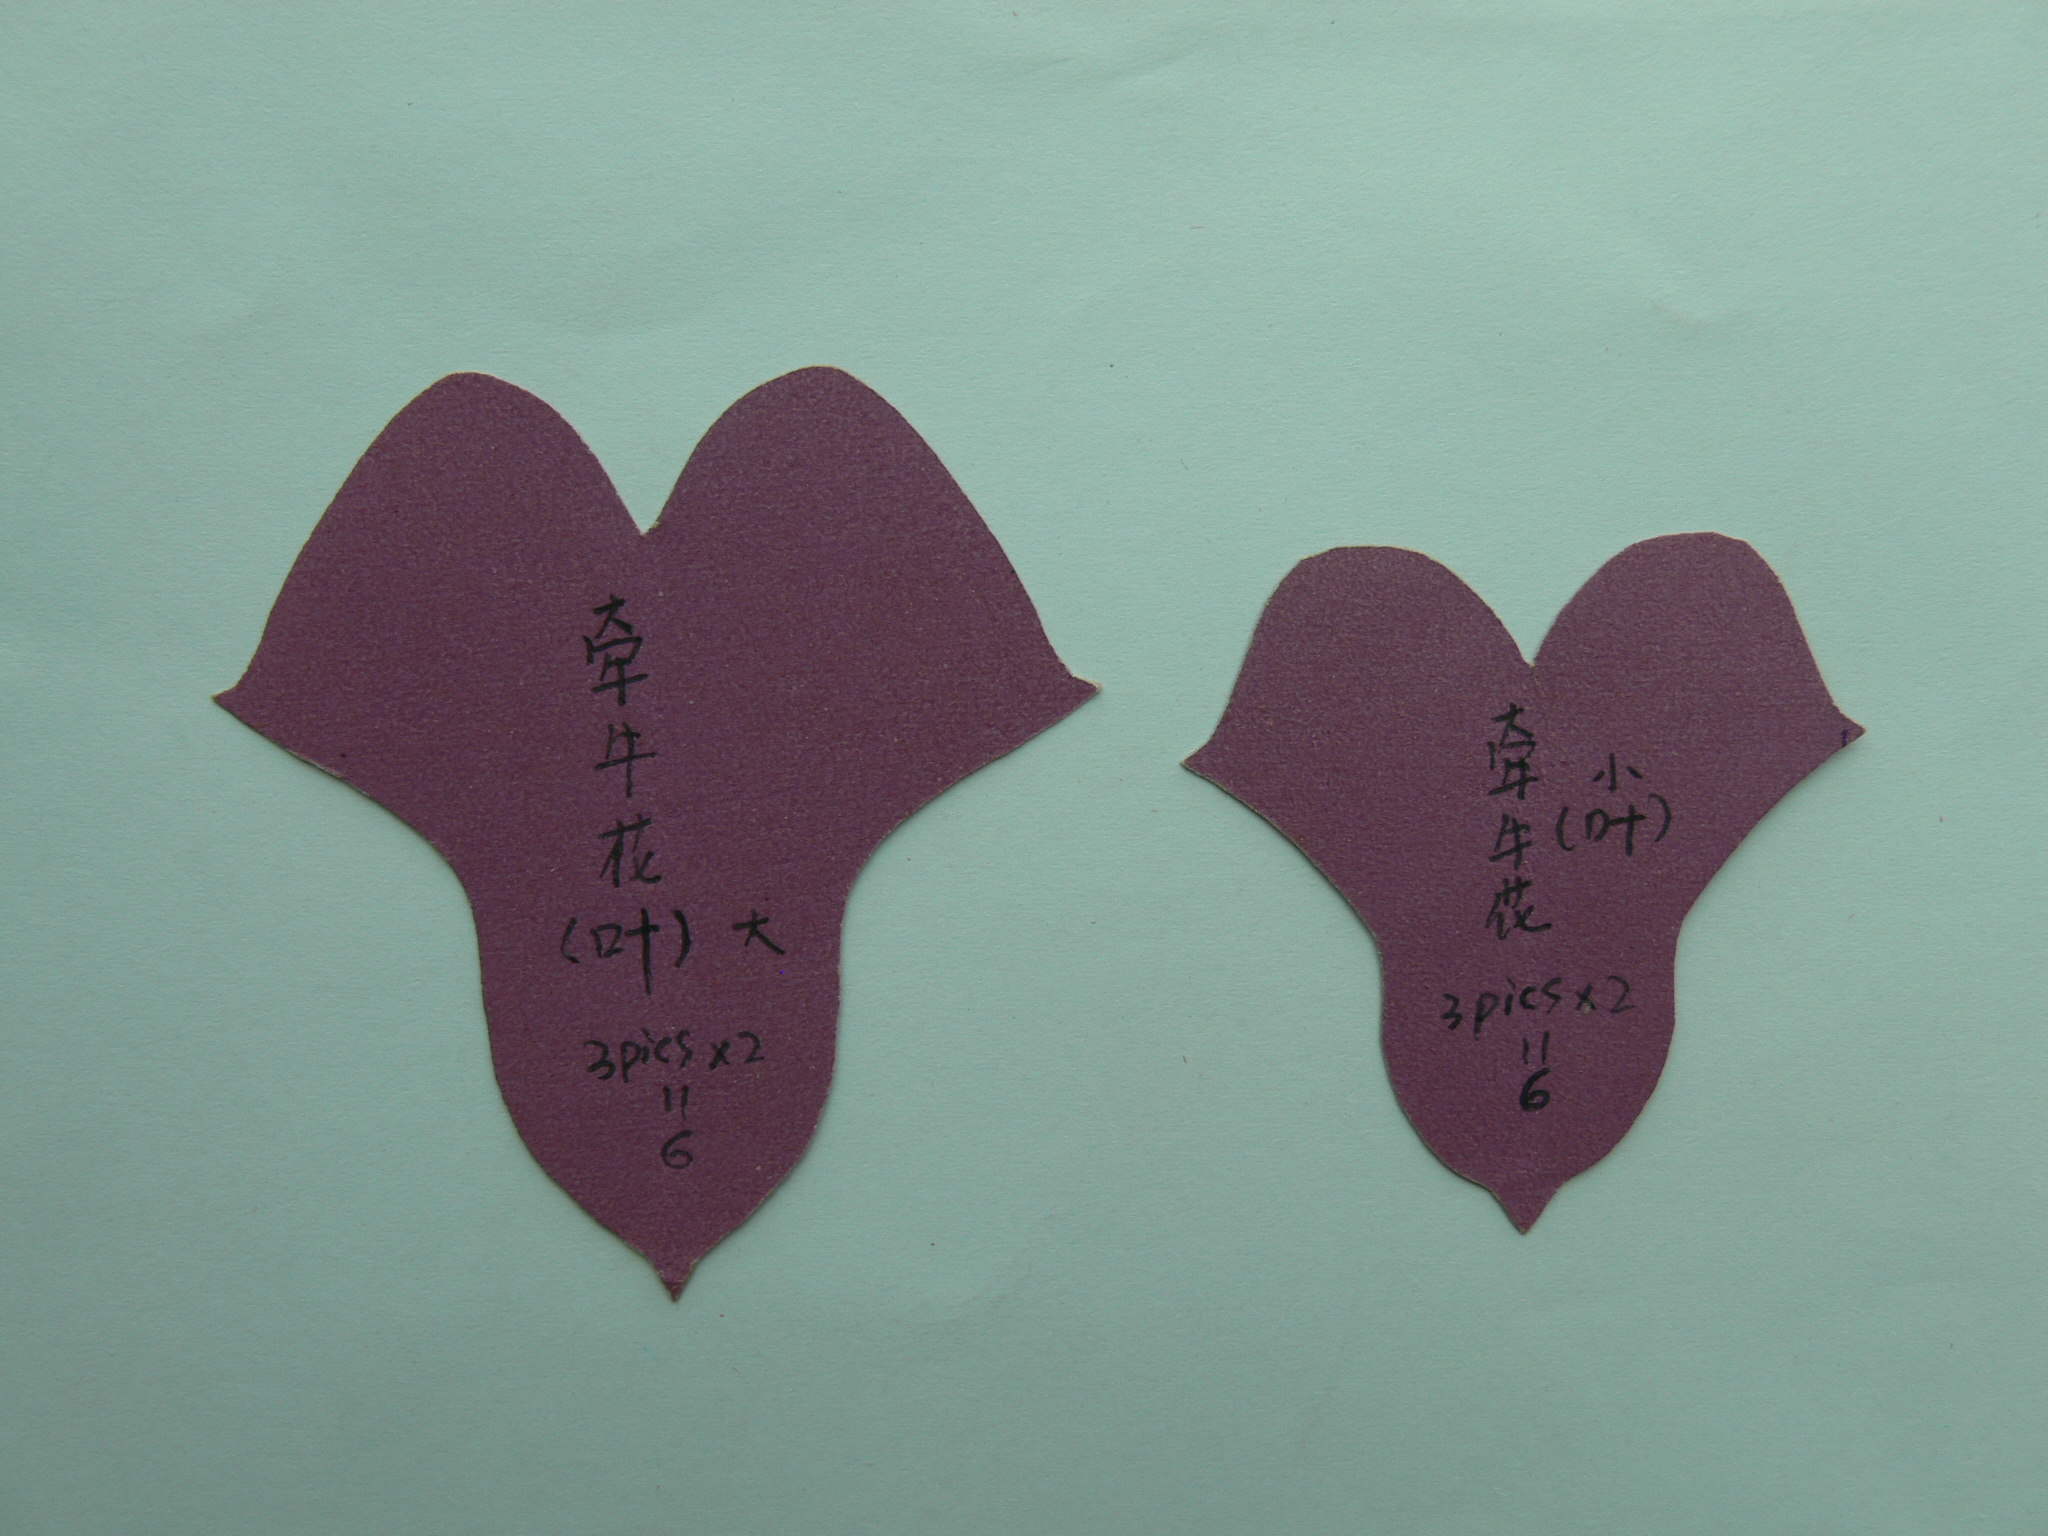 牵牛花
(叶) 大
3pics x2
=
6
牵牛花
小
(叶)
3pics x2
=
6